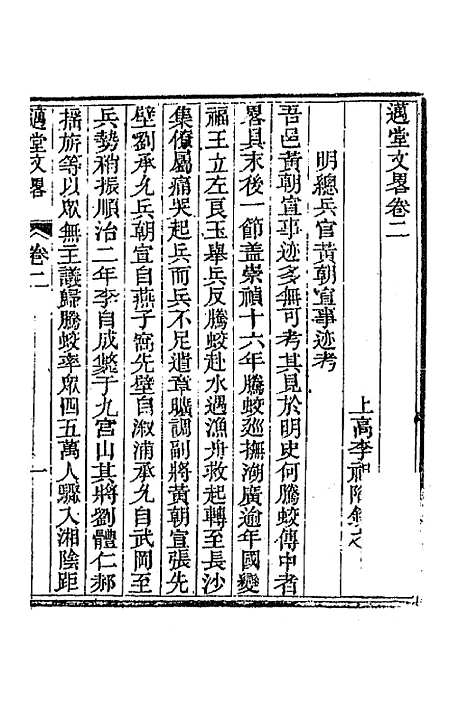 邁堂文畧卷二
上高李祖陶錄之
明總兵官黃朝宣事迹考
吾邑黃朝宣事迹多無可考其見於明史何騰蛟傳中者
畧具末後一節蓋崇禎十六年騰蛟巡撫湖廣逾年國變
福王立左良玉舉兵反騰蛟赴水遇漁舟救起轉至長沙
集僚屬痛哭起兵而兵不足遣章曠調副將黃朝宣張先
壁劉承允兵朝宣自燕子窩先壁自溆浦承允自武岡至
兵勢稍振順治二年李自成斃于九宮山其將劉體仁郝
搖旂等以眾無主議歸騰蛟率眾四五萬人驟入湘陰距
邁堂文畧
卷二
一